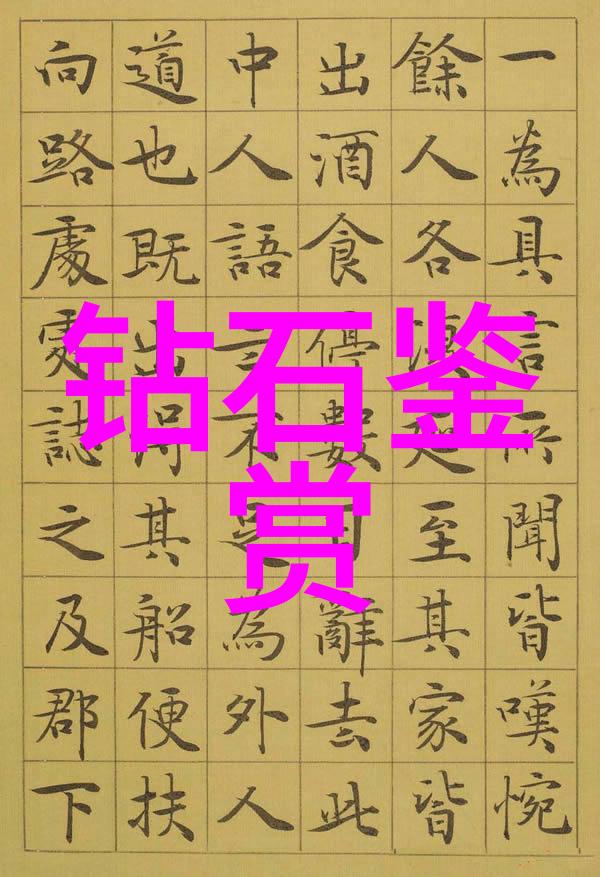 一為具言所聞皆嘆惋
餘人各復延至其家皆
出酒食停數日辭去此
中人語云不足為外人
道也既出得其船便扶
向路處處誌之及郡下
钻石鉴
赏